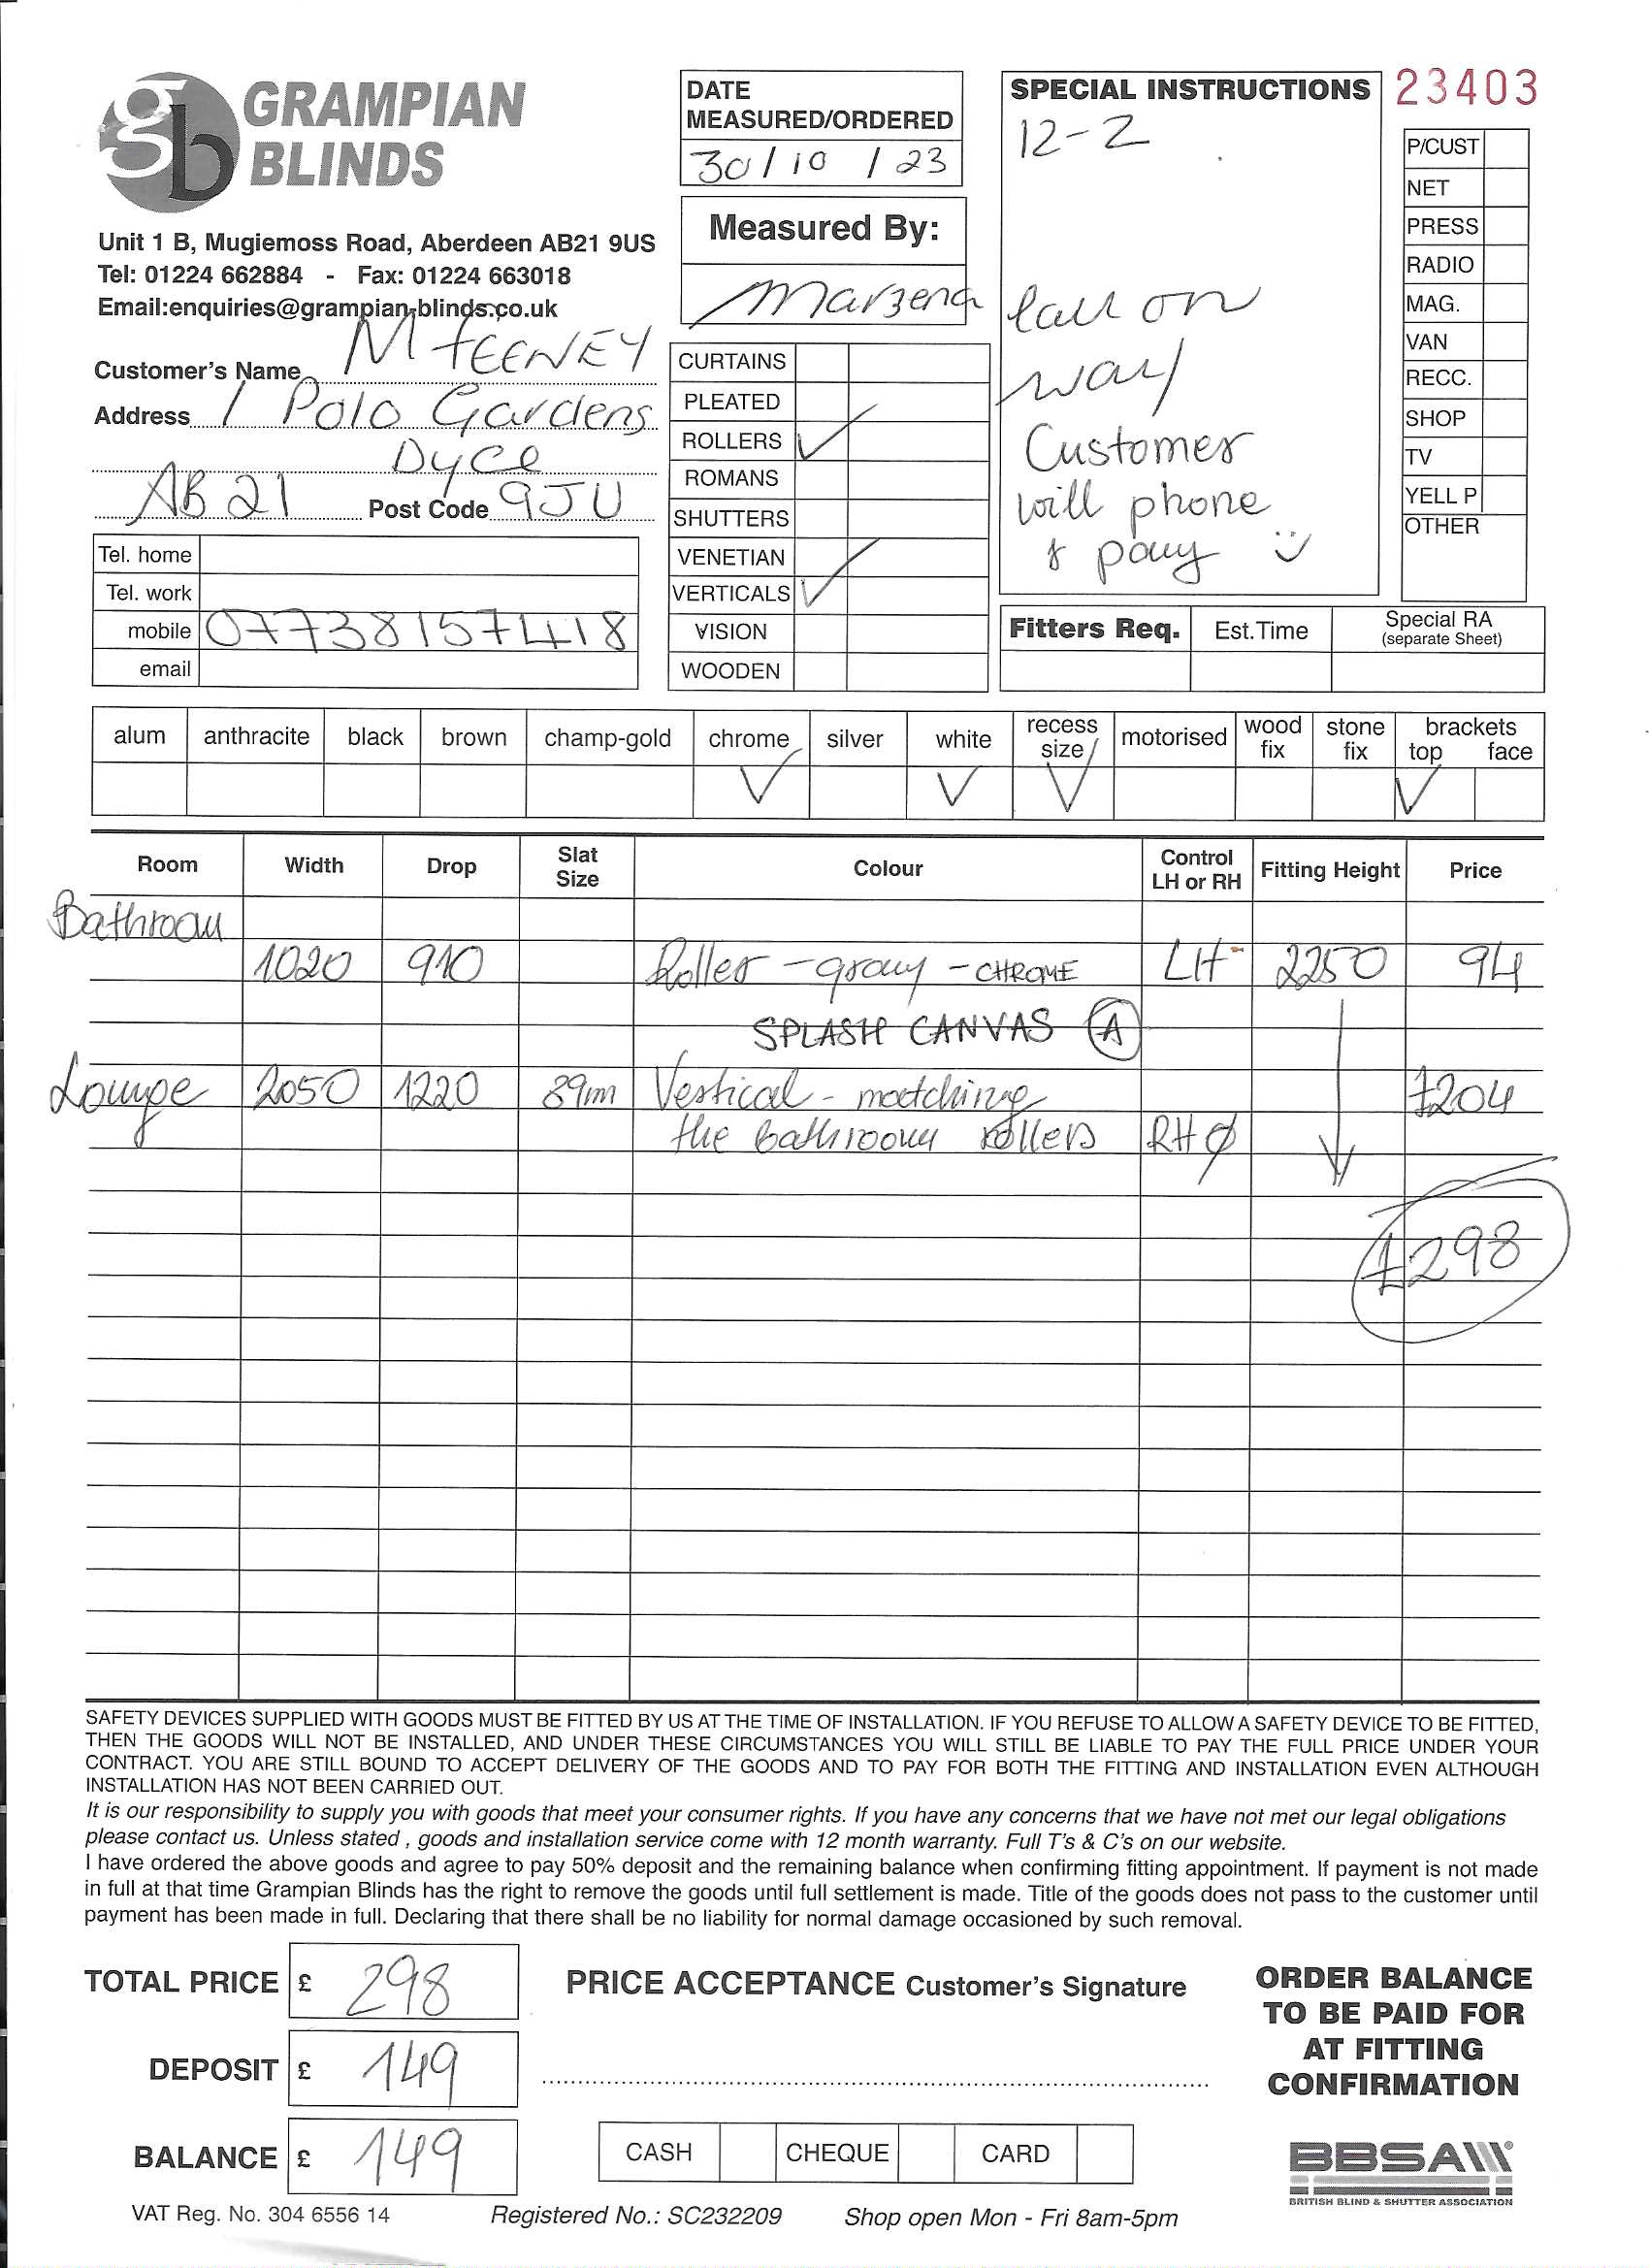 gb GRAMPIAN
BLINDS
Unit 1 B, Mugiemoss Road, Aberdeen AB21 9US
Tel: 01224 662884 - Fax: 01224 663018
Email:enquiries@grampian-blinds.co.uk
Customer's Name M FEENEY
Address 1 Polo Gardens
Dyce
AB21 Post Code 9JU
Tel. home
Tel. work
mobile 07738157418
email
DATE
MEASURED/ORDERED
30/10/23
Measured By:
Marzena
CURTAINS
PLEATED
ROLLERS ✓
ROMANS
SHUTTERS
VENETIAN
VERTICALS ✓
VISION
WOODEN
SPECIAL INSTRUCTIONS
12-2
Call on
way
Customer
will phone
& pay
23403
P/CUST
NET
PRESS
RADIO
MAG.
VAN
RECC.
SHOP
TV
YELL P
OTHER
Fitters Req. Est.Time Special RA
(separate Sheet)
alum anthracite black brown champ-gold chrome silver white recess size motorised wood fix stone fix brackets top face
✓ ✓ ✓ ✓
Room Width Drop Slat Size Colour Control LH or RH Fitting Height Price
Bathroom
1020 910 Roller - gray - CHROME LH 2250 94
SPLASH CANVAS A
Lounge 2050 1220 89mm Vertical - matching £204
the bathroom rollers RH
£298
SAFETY DEVICES SUPPLIED WITH GOODS MUST BE FITTED BY US AT THE TIME OF INSTALLATION. IF YOU REFUSE TO ALLOW A SAFETY DEVICE TO BE FITTED,
THEN THE GOODS WILL NOT BE INSTALLED, AND UNDER THESE CIRCUMSTANCES YOU WILL STILL BE LIABLE TO PAY THE FULL PRICE UNDER YOUR
CONTRACT. YOU ARE STILL BOUND TO ACCEPT DELIVERY OF THE GOODS AND TO PAY FOR BOTH THE FITTING AND INSTALLATION EVEN ALTHOUGH
INSTALLATION HAS NOT BEEN CARRIED OUT.
It is our responsibility to supply you with goods that meet your consumer rights. If you have any concerns that we have not met our legal obligations
please contact us. Unless stated , goods and installation service come with 12 month warranty. Full T's & C's on our website.
I have ordered the above goods and agree to pay 50% deposit and the remaining balance when confirming fitting appointment. If payment is not made
in full at that time Grampian Blinds has the right to remove the goods until full settlement is made. Title of the goods does not pass to the customer until
payment has been made in full. Declaring that there shall be no liability for normal damage occasioned by such removal.
TOTAL PRICE £ 298
DEPOSIT £ 149
BALANCE £ 149
PRICE ACCEPTANCE Customer's Signature
CASH CHEQUE CARD
ORDER BALANCE
TO BE PAID FOR
AT FITTING
CONFIRMATION
BBSA
BRITISH BLIND & SHUTTER ASSOCIATION
VAT Reg. No. 304 6556 14 Registered No.: SC232209 Shop open Mon - Fri 8am-5pm